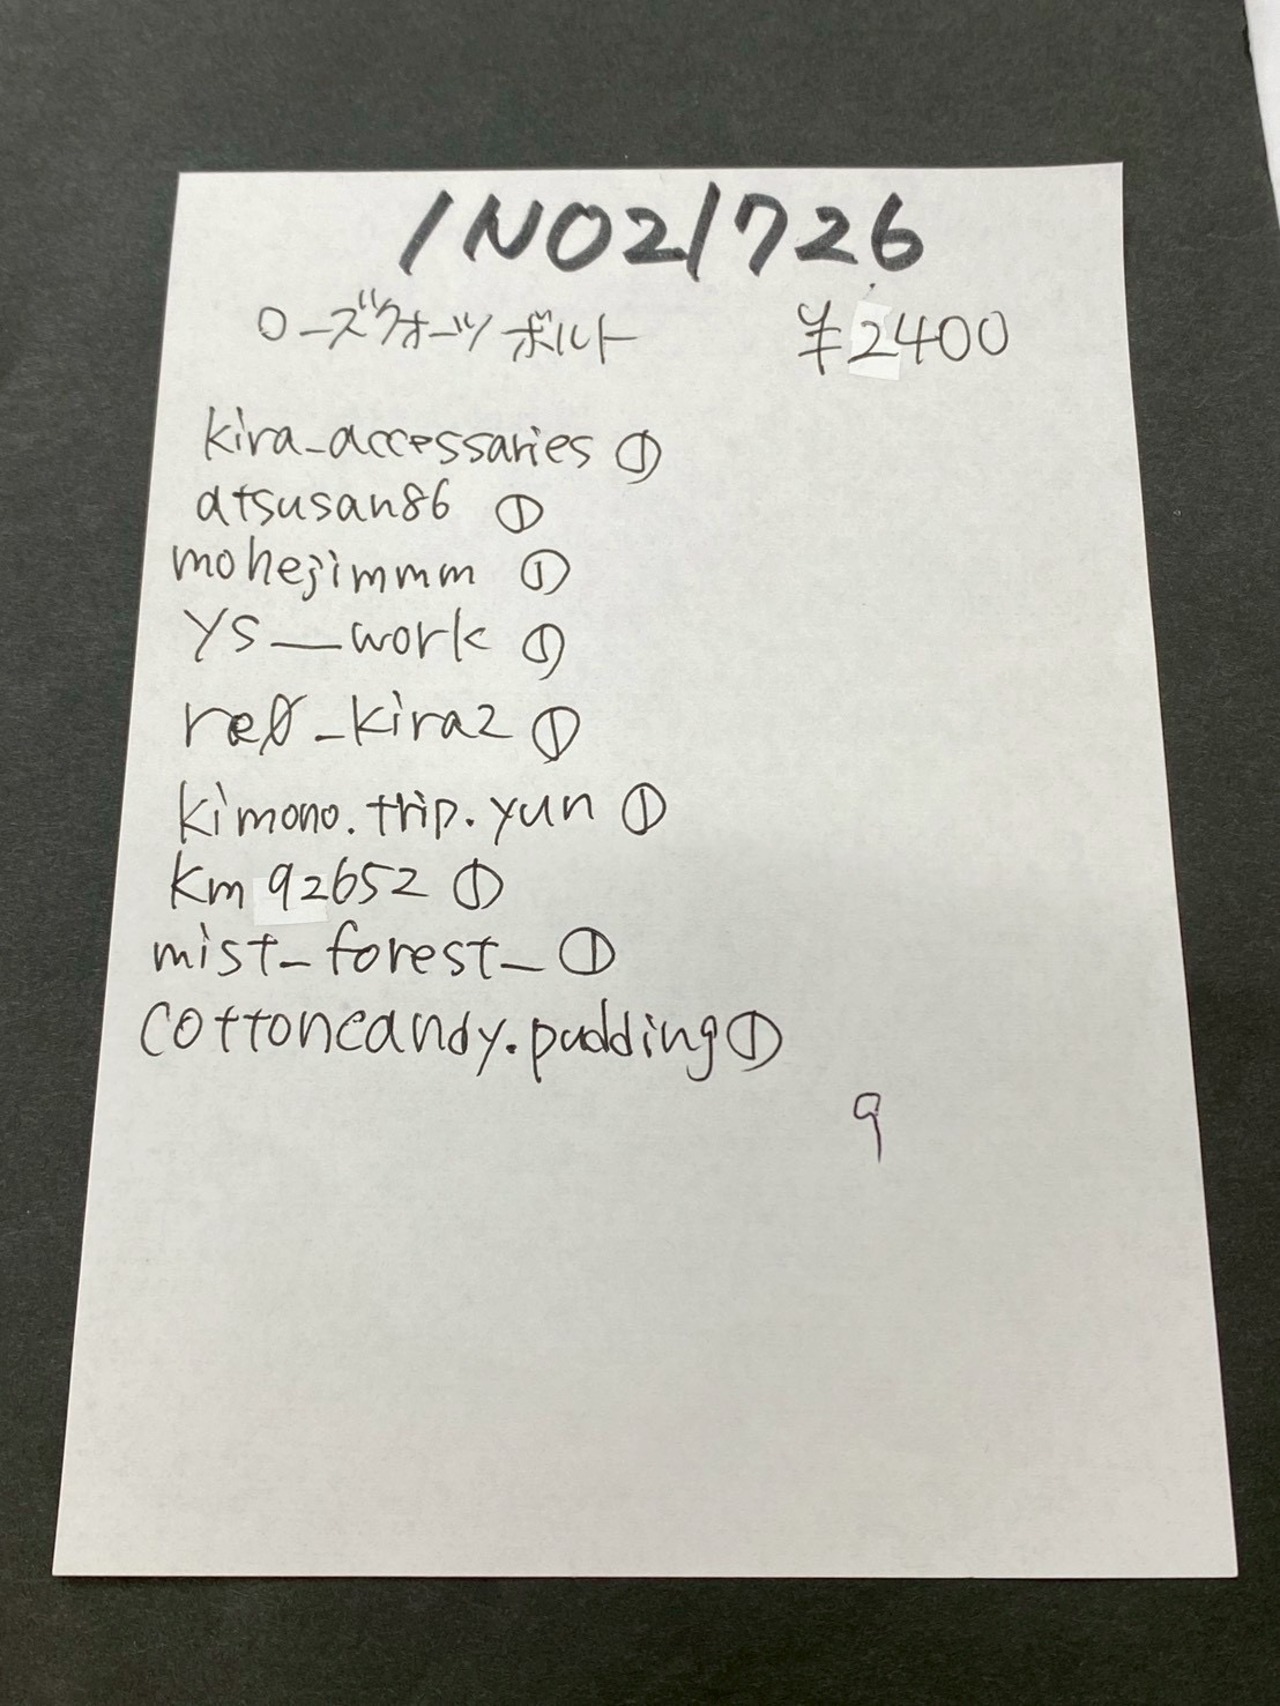 1NO21726
ローズクォーツ ボルト ¥2400
kira_accessaries ①
atsusan86 ①
mohejimmm ①
ys__work ①
re0_kira2 ①
kimono.trip.yun ①
km92652 ①
mist_forest_ ①
cottoncandy.pudding ①
9